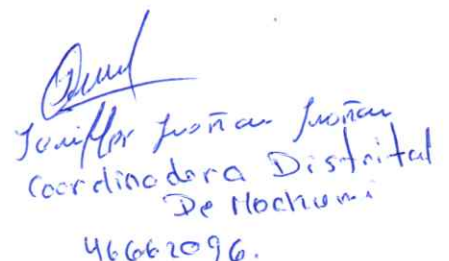 Juoñau Juoñau
Coordinadora Distrital
De Mochumi
46662096.